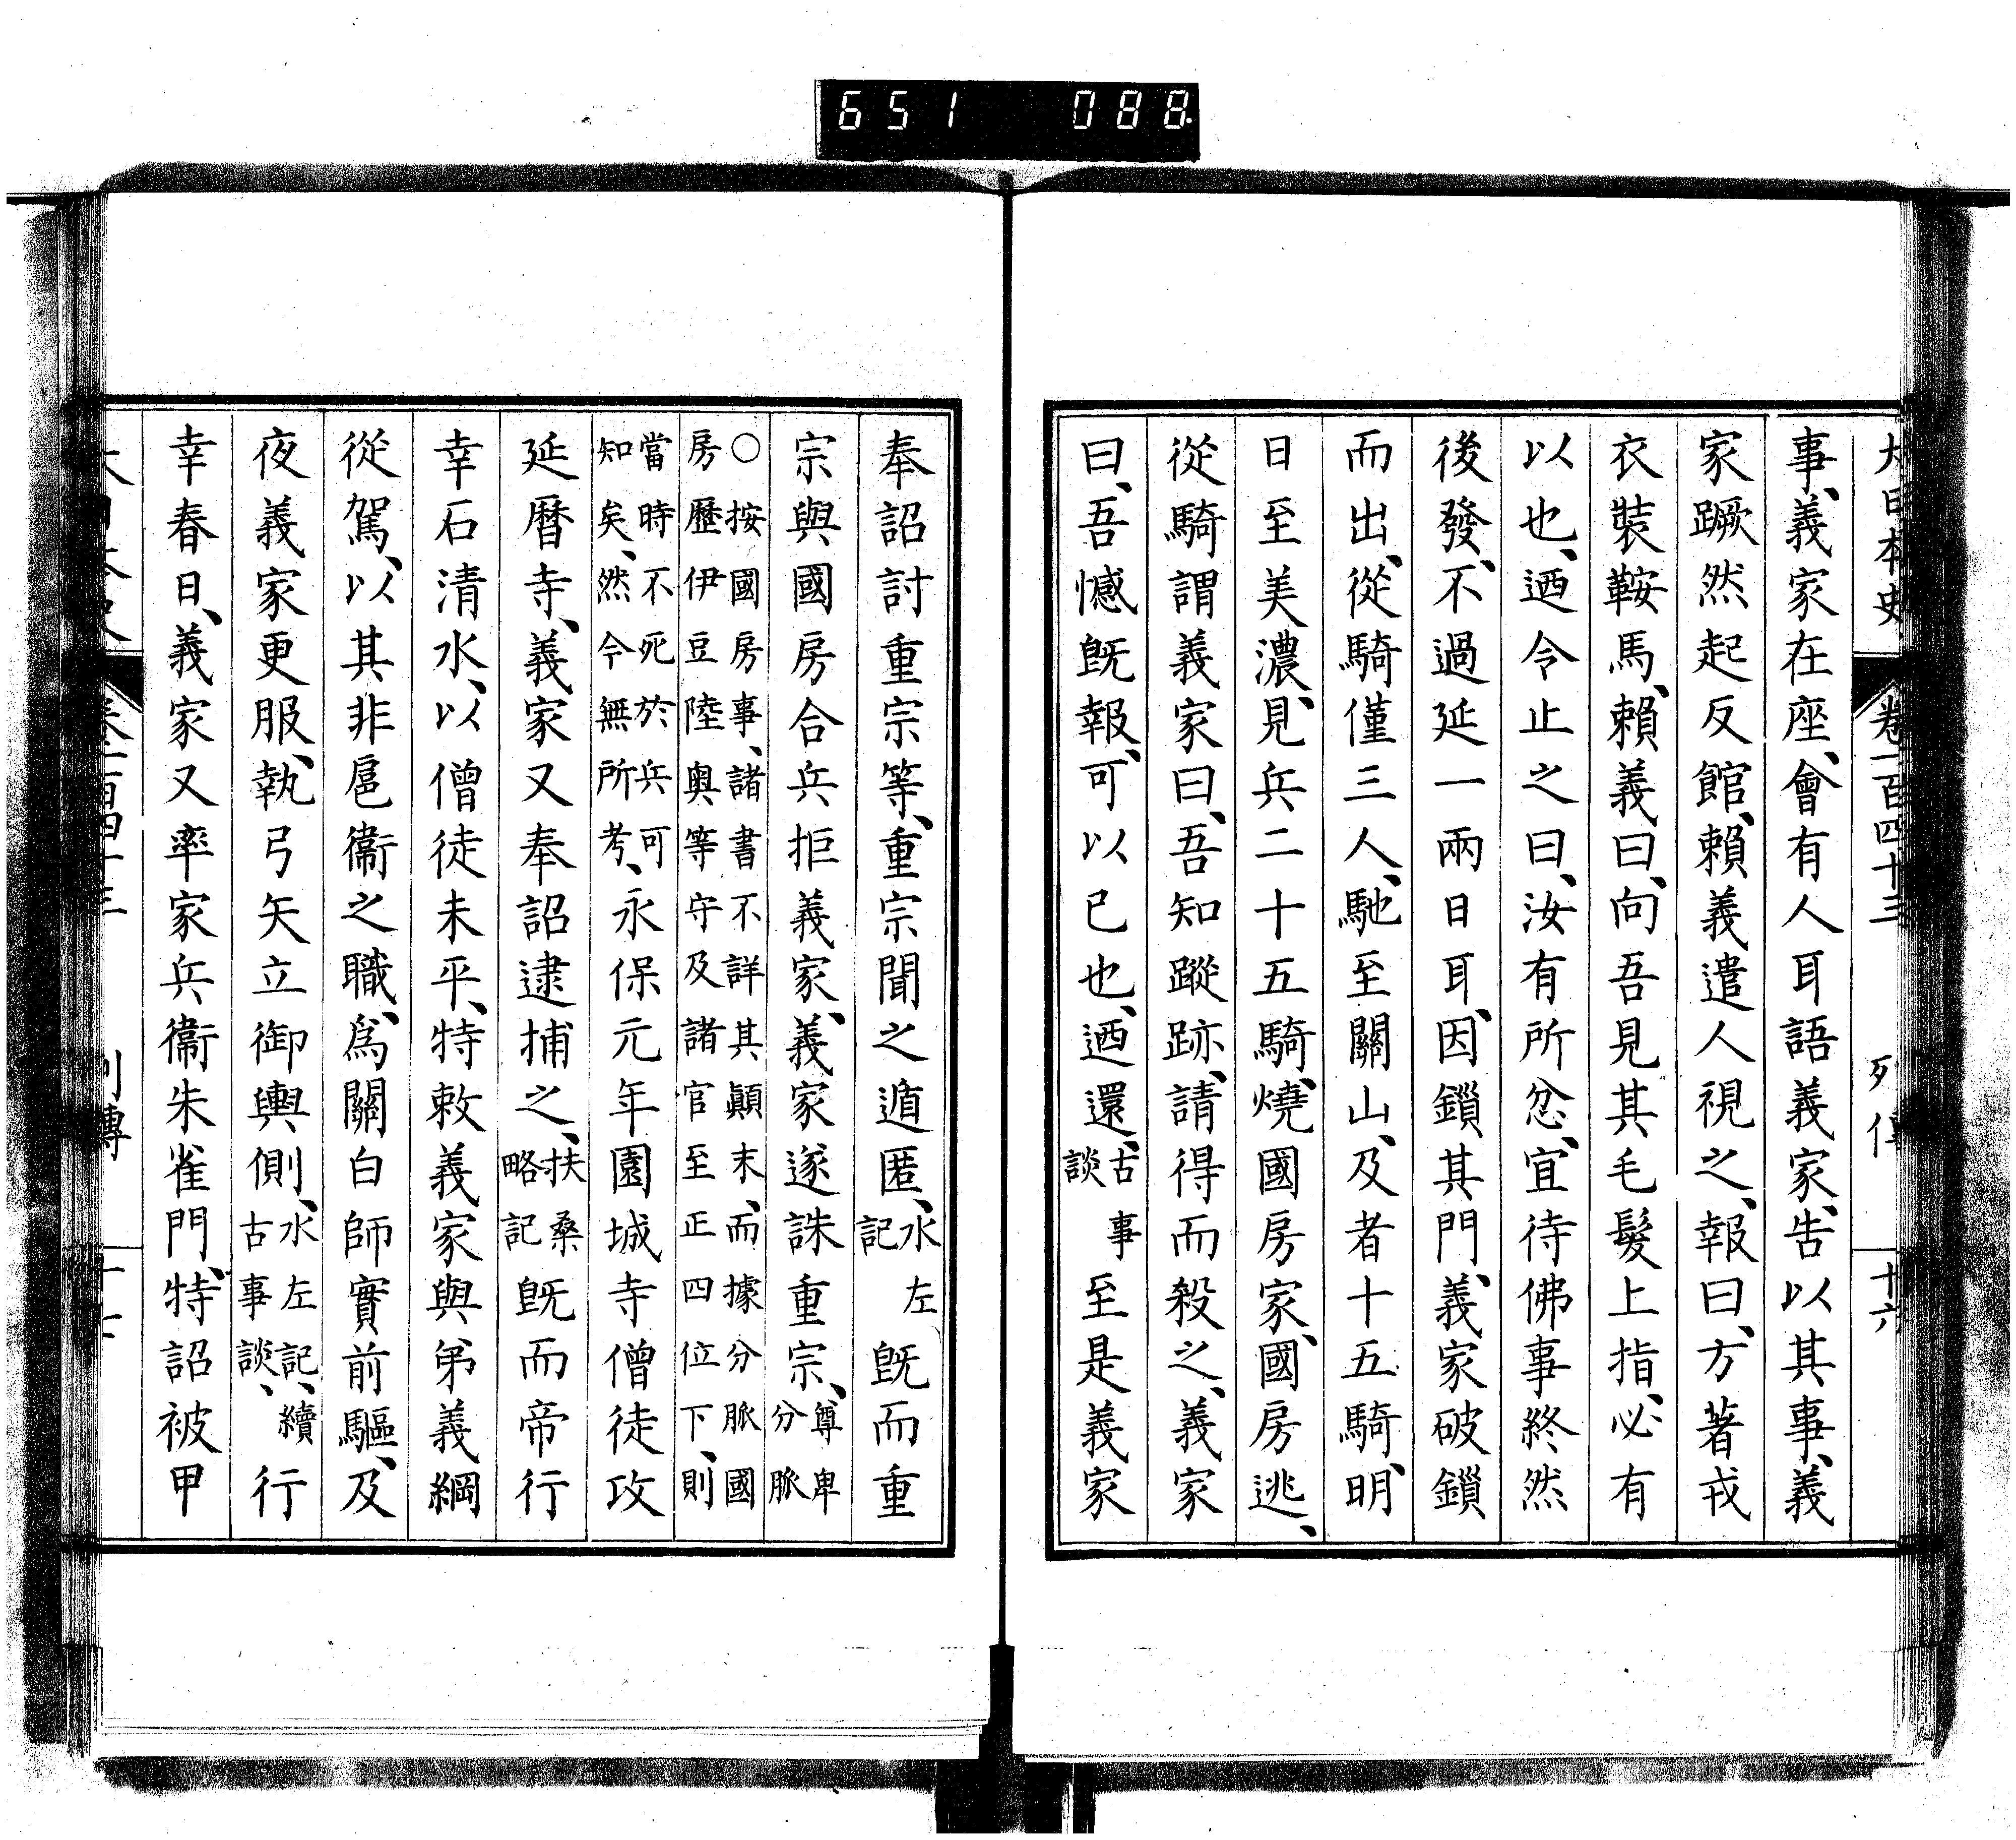 651 088
大日本史 卷一百四十三 列傳 十六
事、義家在座、會有人耳語義家、告以其事、義
家蹶然起反館、賴義遣人視之、報曰、方著戎
衣裝鞍馬、賴義曰、向吾見其毛髮上指、必有
以也、迺令止之曰、汝有所忿、宜待佛事終然
後發、不過延一兩日耳、因鎖其門、義家破鎖
而出、從騎僅三人、馳至關山、及者十五騎、明
日至美濃、見兵二十五騎、燒國房家、國房逃、
從騎謂義家曰、吾知蹤跡、請得而殺之、義家
曰、吾憾既報、可以已也、迺還、古事談至是義家
奉詔討重宗等、重宗聞之遁匿、水左記既而重
宗與國房合兵拒義家、義家遂誅重宗、尊卑分脈
○按國房事、諸書不詳其顛末、而據分脈國
房歷伊豆陸奥等守及諸官至正四位下、則
當時不死於兵可
知矣、然今無所考、永保元年園城寺僧徒攻
延曆寺、義家又奉詔逮捕之、扶桑略記既而帝行
幸石清水、以僧徒未平、特敕義家與弟義綱
從駕、以其非扈衞之職、爲關白師實前驅、及
夜義家更服、執弓矢立御輿側、水左記、續古事談、行
幸春日、義家又率家兵衞朱雀門、特詔被甲
大日本史 卷一百四十三 列傳 十七